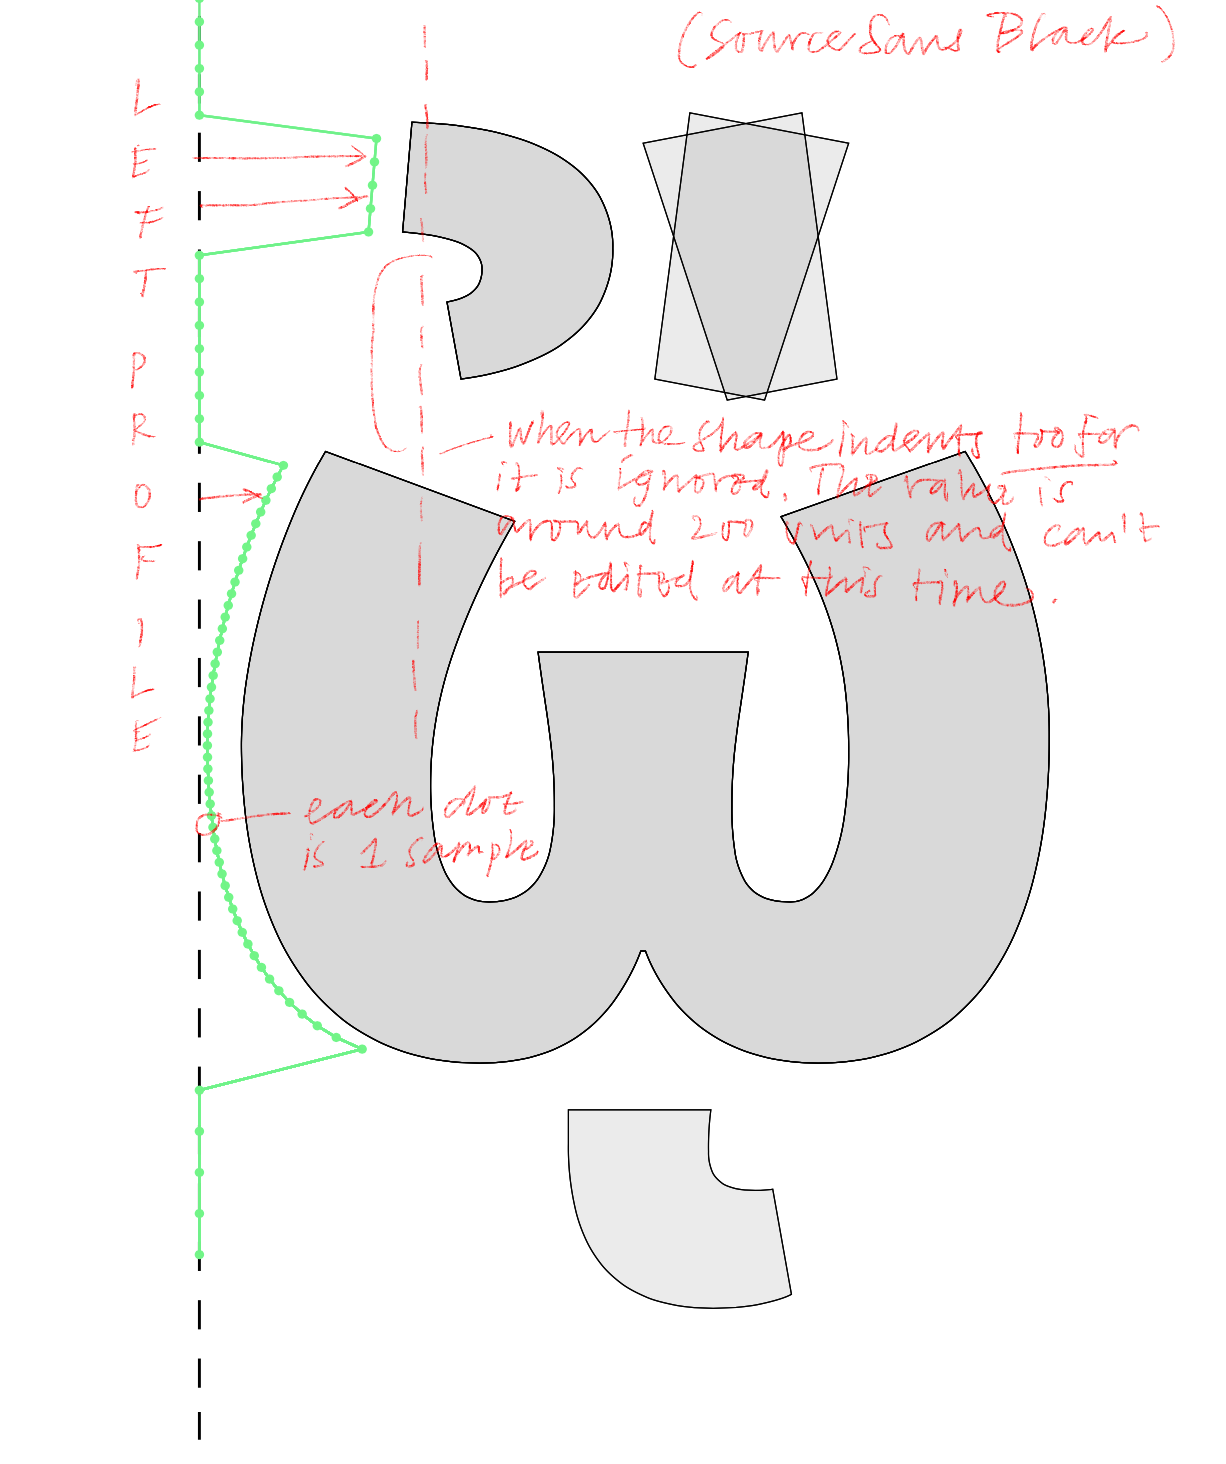 (Source Sans Black)
LEFT PROFILE
when the shape indents too far
it is ignored. The value is
around 200 units and can't
be edited at this time.
each dot
is 1 sample